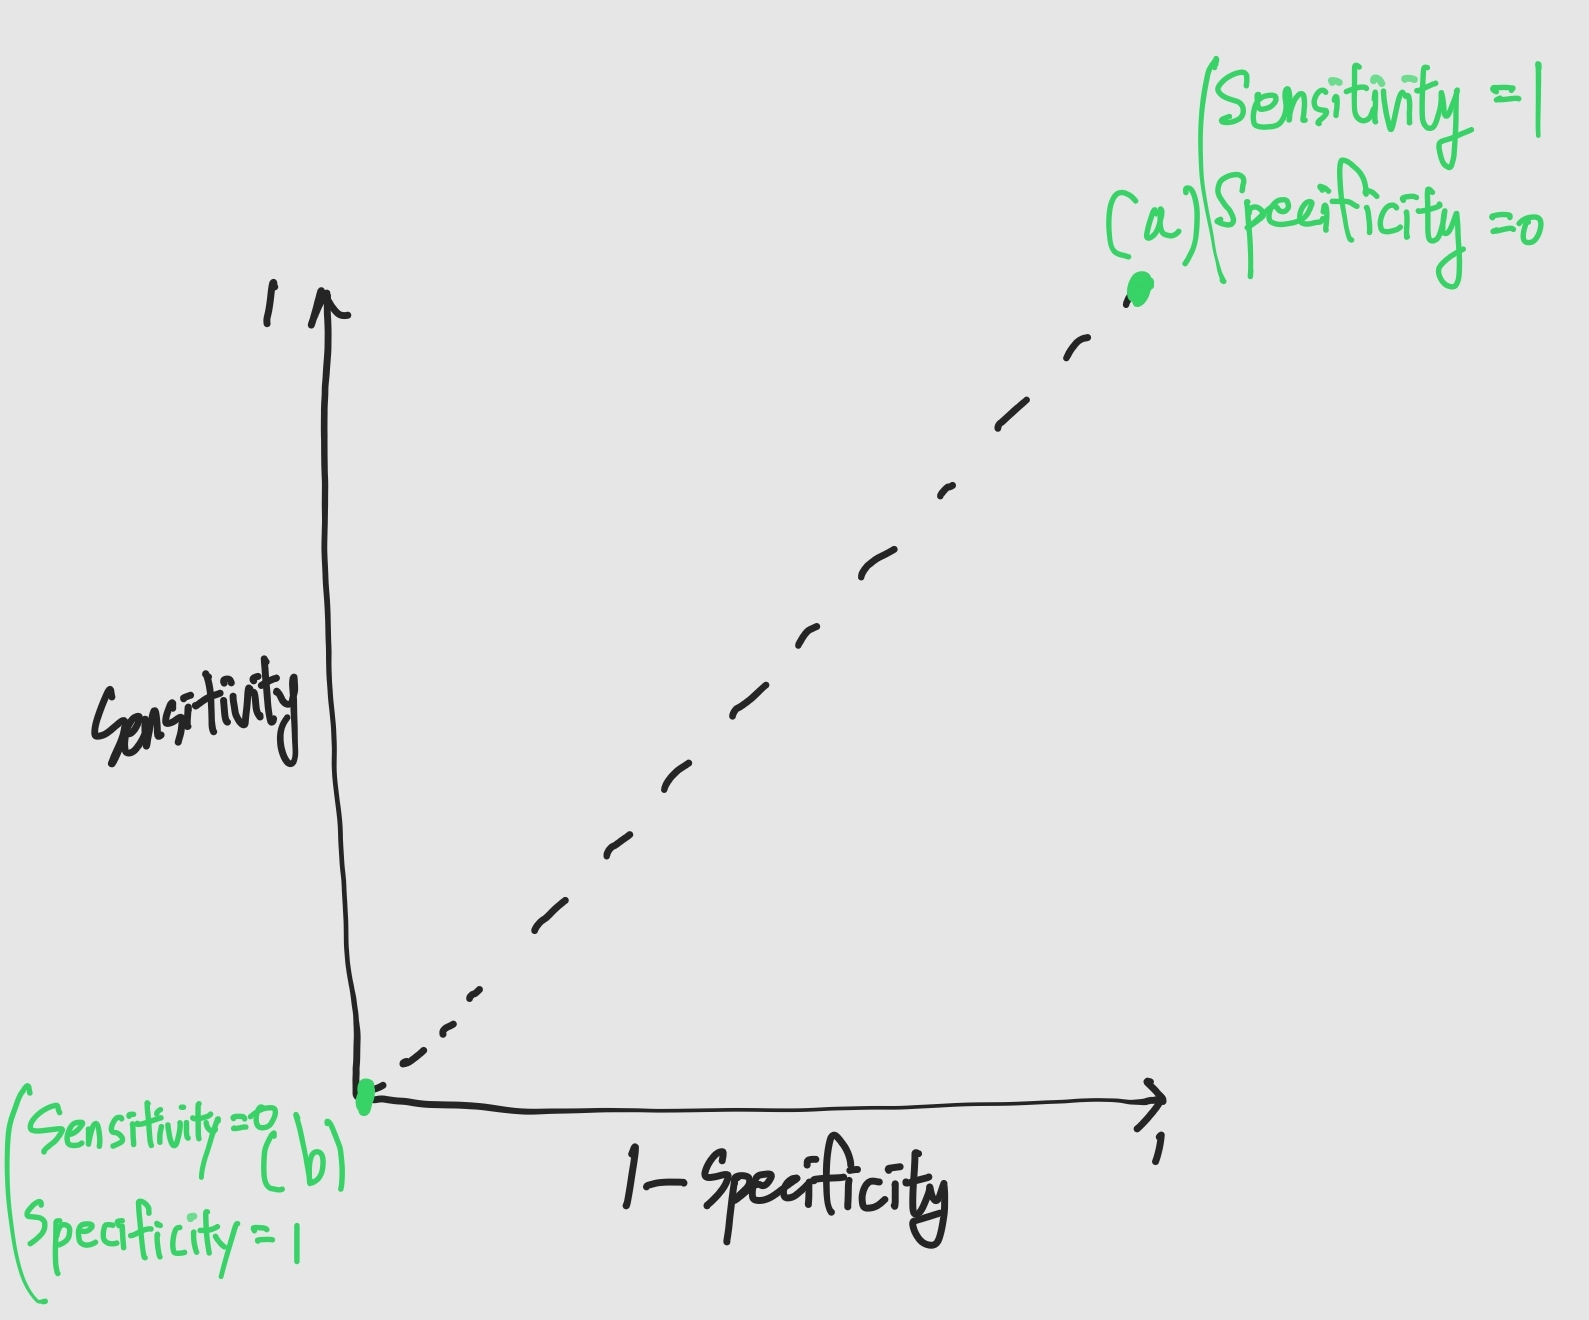 Sensitivity = 1
(a) Specificity = 0
1
Sensitivity
Sensitivity = 0
(b)
Specificity = 1
1 - Specificity
1